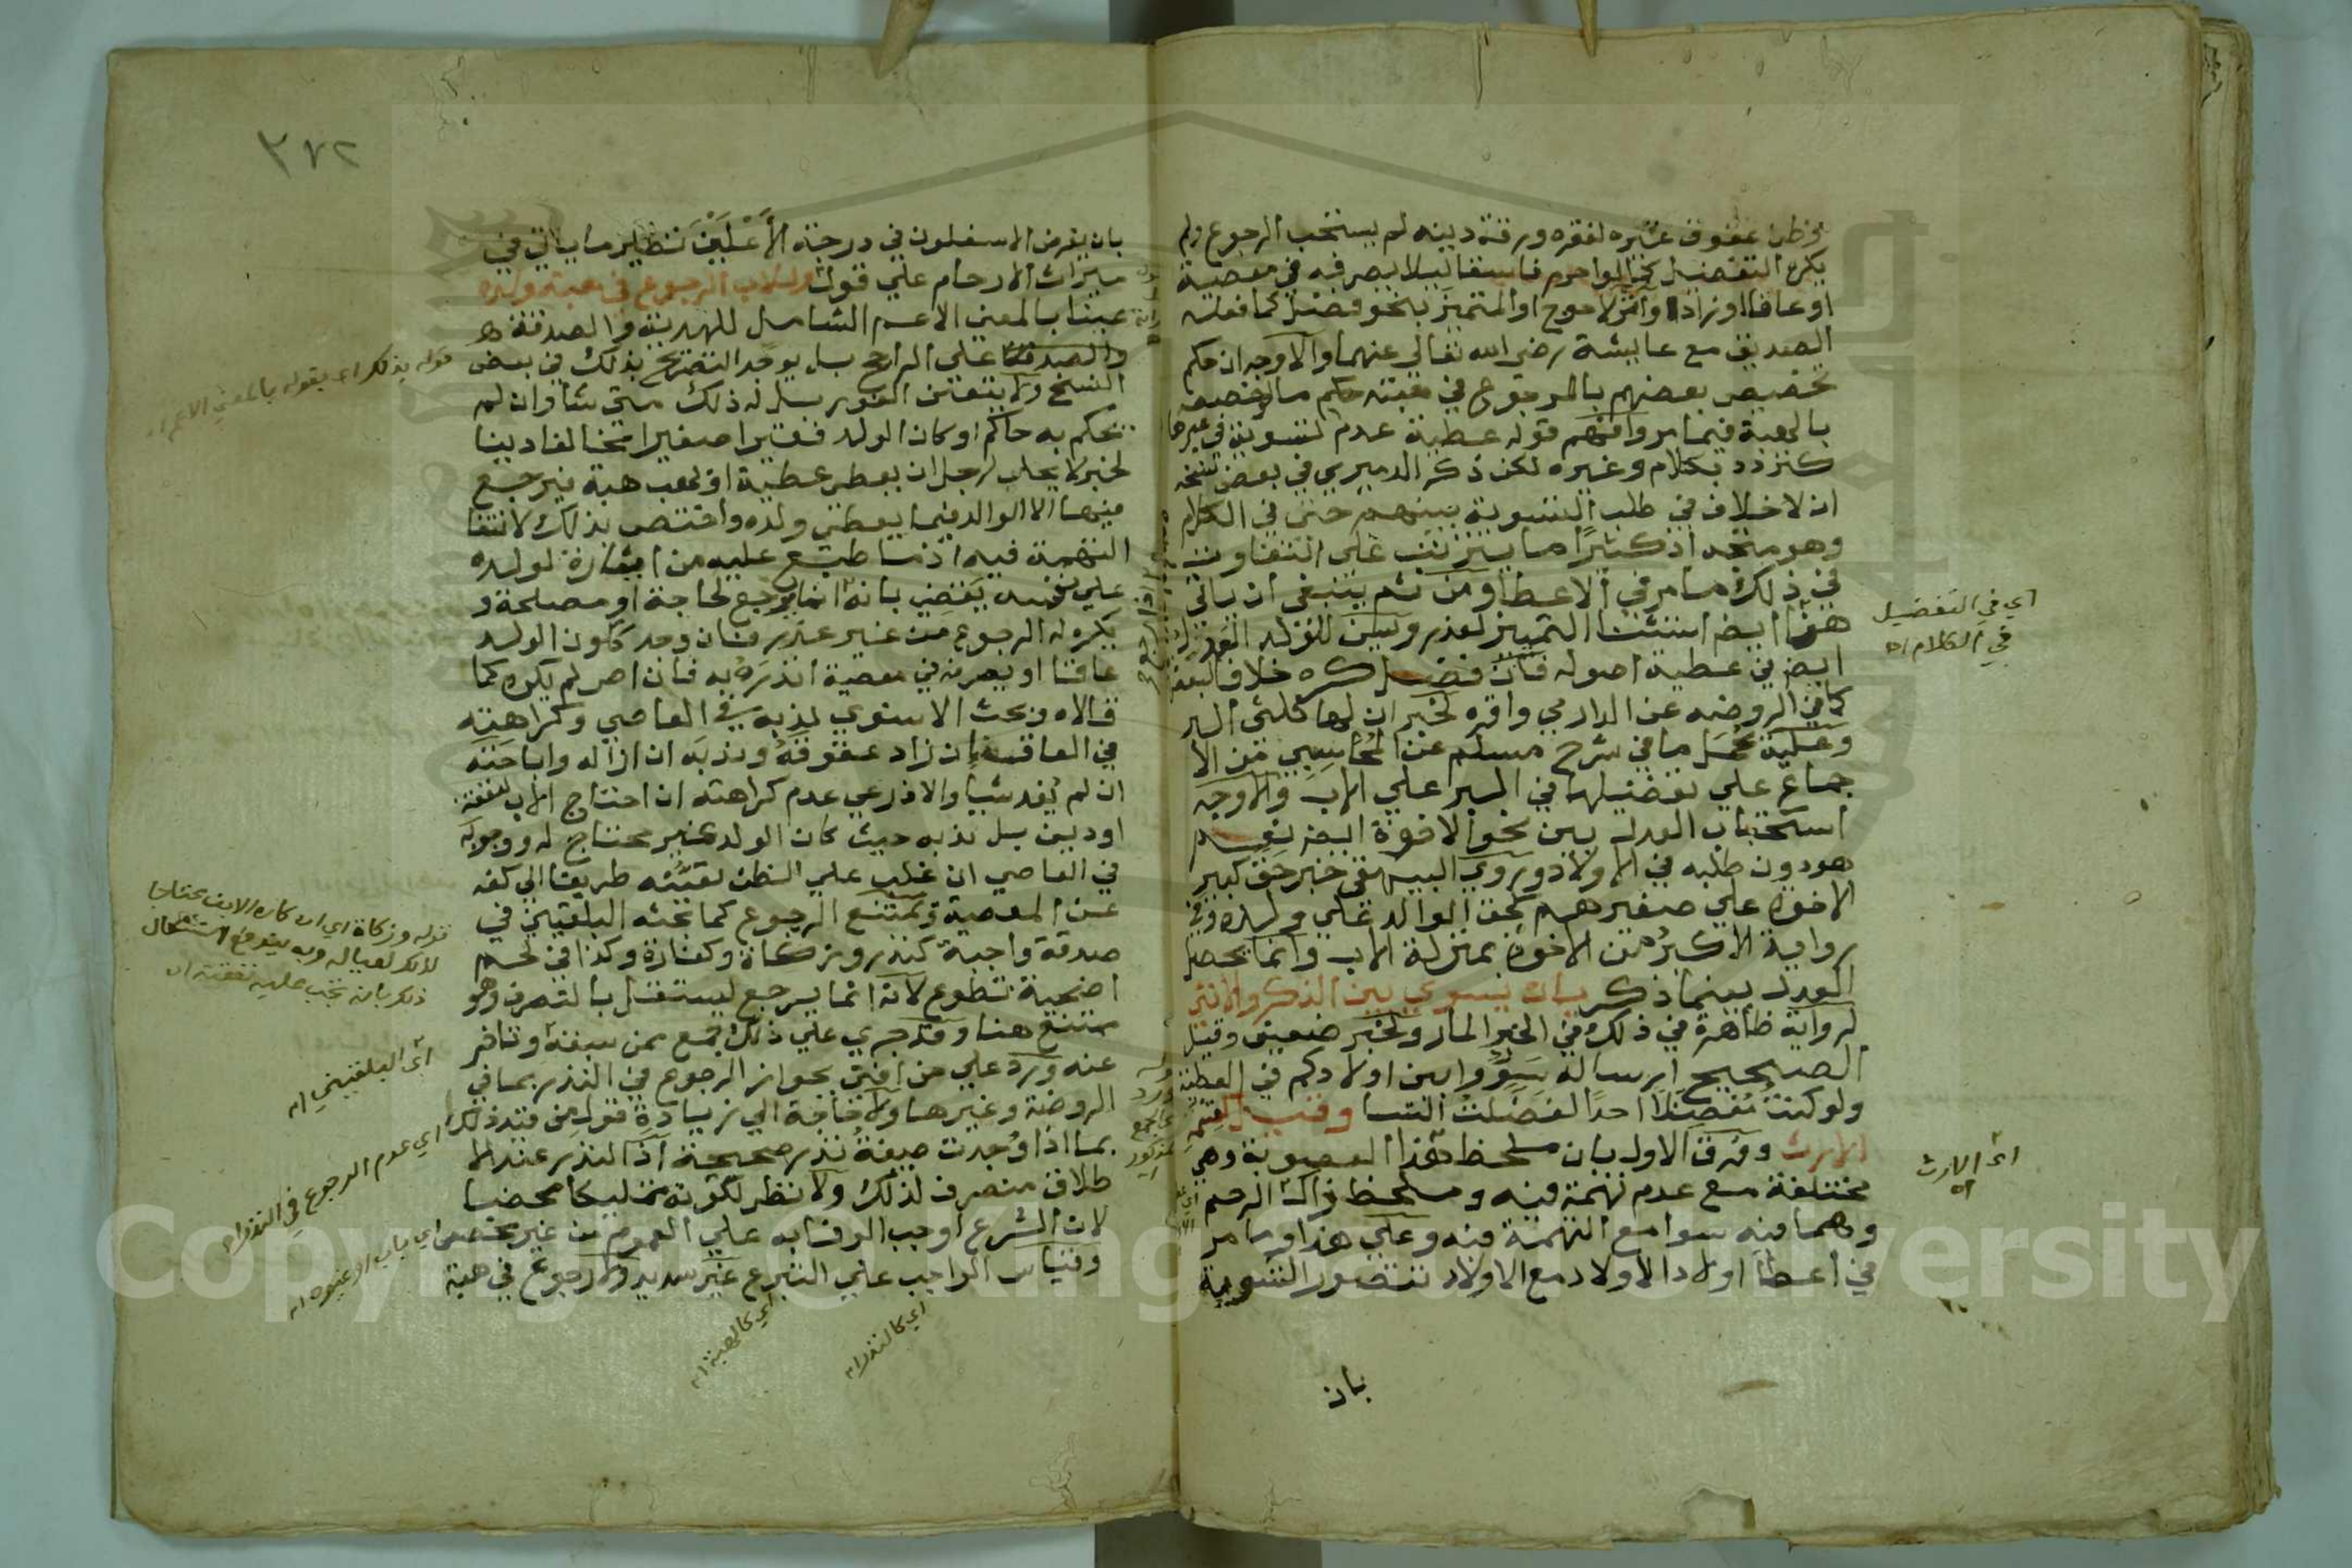 بان
يخطر عقوق غيره لفقره ورقة دينه لم يستحب الرجوع ولم
يكره التفضيل كما لو احرم فاسقا ليلا يصرفه في معصية
او عاقا او زاد او آثر الاحوج او المتميز بنحو فضل كما فعله
الصديق مع عايشة رضي الله تعالى عنهما والاوجه ان حكم
تخصيص بعضهم بالرجوع في هبته حكم ما لو خصصه
بالهبة فيما مر وافهم قوله عطية عدم لتسوية في غيرها
كتردد بكلام وغيره لكن ذكر الدميري في بعض نسخه
ان لا خلاف في طلب التسوية بينهم حتى في الكلام
وهو متجه اذ كثيرًا ما يترتب على التفاوت
في ذلك ما مر في الاعطا ومن ثم ينبغي ان ياتي
هنا ايضا استثنا التمييز لعذر ويسن للولد العدل
ايضا في عطية اصوله فان فضل كره خلافا لبعضهم
كما في الروضه عن الدارمي واقره لخبر ان لها ثلثي البر
وعليه يحمل ما في شرح مسلم عن المحاسبي من الا
جماع على تفضيلها في البر على الاب والاوجه
استحباب العدل بين نحو الاخوة ايضا نعم
هو دون طلبه في الاولاد وروي البيهقي خبر حق كبير
الاخوة علي صغيرهم كحق الوالد علي ولده وفي
رواية الاكبر من الاخوة بمنزلة الاب وانما يحصل
العدل بينما ذكر بان يسوي بين الذكر والانثى
لرواية ظاهرة في ذلك في الخبر المار ولخبر ضعيف وقيل
الصحيح ارساله سَوُّوا بين اولادكم في العطية
ولو كنت مُفضِلًا احدًا لفضلتُ النسا وقيل كقسمة
الارث وفرق الاول بان ملحظ هذا العصوبة وهي
مختلفة مع عدم تهمة فيه وملحظ ذاك الرحم
وهما فيه سوا مع التهمة فيه وعلى هذا وما مر
في اعطا اولاد الاولاد مع الاولاد تتصور التسوية
اي في التفضيل
في الكلام اه
اي الارث
اه
بان
٣٧٢
بان يفرض الاسفلون في درجة الأعلَيْنَ نظير ما ياتي في
ميراث الارحام علي قول وللاب الرجوع في هبة ولده
عينا بالمعني الاعم الشامل للهدية والصدقة
والصدقة علي الراجح بل يوجد التصريح بذلك في بعض
النسخ ولا يتعين الفور بل له ذلك متي شا وان لم
يحكم به حاكم او كان الولد فقيرا صغيرا مخالفا دينا
لخبر لا يحل لرجل ان يعطي عطية او يهب هبة فيرجع
فيها الا الوالد فيما يعطي ولده واختص بذلك لانتفا
التهمة فيه اذ ما طبع عليه من ايثاره لولده
علي نفسه يقضي بانه انما يرجع لحاجة او مصلحة و
يكره له الرجوع من غير عذر فان وجد ككون الولد
عاقا او يصرفه في معصية انذره به فان اصر لم يكره كما
قالاه وبحث الاسنوي ندبه في العاصي وكراهته
في العاق ان زاد عقوقهُ وندبه ان ازاله واباحته
ان لم يُفد شيا والاذرعي عدم كراهته ان احتاج الاب لنفقة
او دين بل ندبه حيث كان الولد غير محتاج له ووجوبه
في العاصي ان غلب علي الظن تعينه طريقا الي كفه
عن المعصية ويمتنع الرجوع كما بحثه البلقيني في
صدقة واجبة كنذر وزكاة وكفارة وكذا في لحم
اضحية تطوع لانه انما يرجع ليستقل بالتصرف وهو
ممتنع هنا وقد جري علي ذلك جمع ممن سبقه وتاخر
عنه ورد علي من افتي بجواز الرجوع في النذر بما في
الروضة وغيرها ولا حاجة الي زيادة قوله من قيد ذلك
بما اذا وُجدت صيغة نذر صحيحة اذ النذر عند الا
طلاق منصرف لذلك ولا نظر لكونه تمليكا محضا
لان الشرع اوجب الوفا به علي العموم من غير مخصص
وقياس الواجب علي التبرع غير سديد ولا رجوع في هبة
قوله بذلك اي بقوله بالمعني الاعم اه
قوله وزكاة اي ان كان الابن محتاجا
لذلك لعياله وبه يندفع استشكال
ذلك بانه تجب عليه نفقته اه
اي البلقيني اه
اي عدم الرجوع في النذر اه
اي باب او غيره اه
اي كالهبة اه
اي كالنذر اه